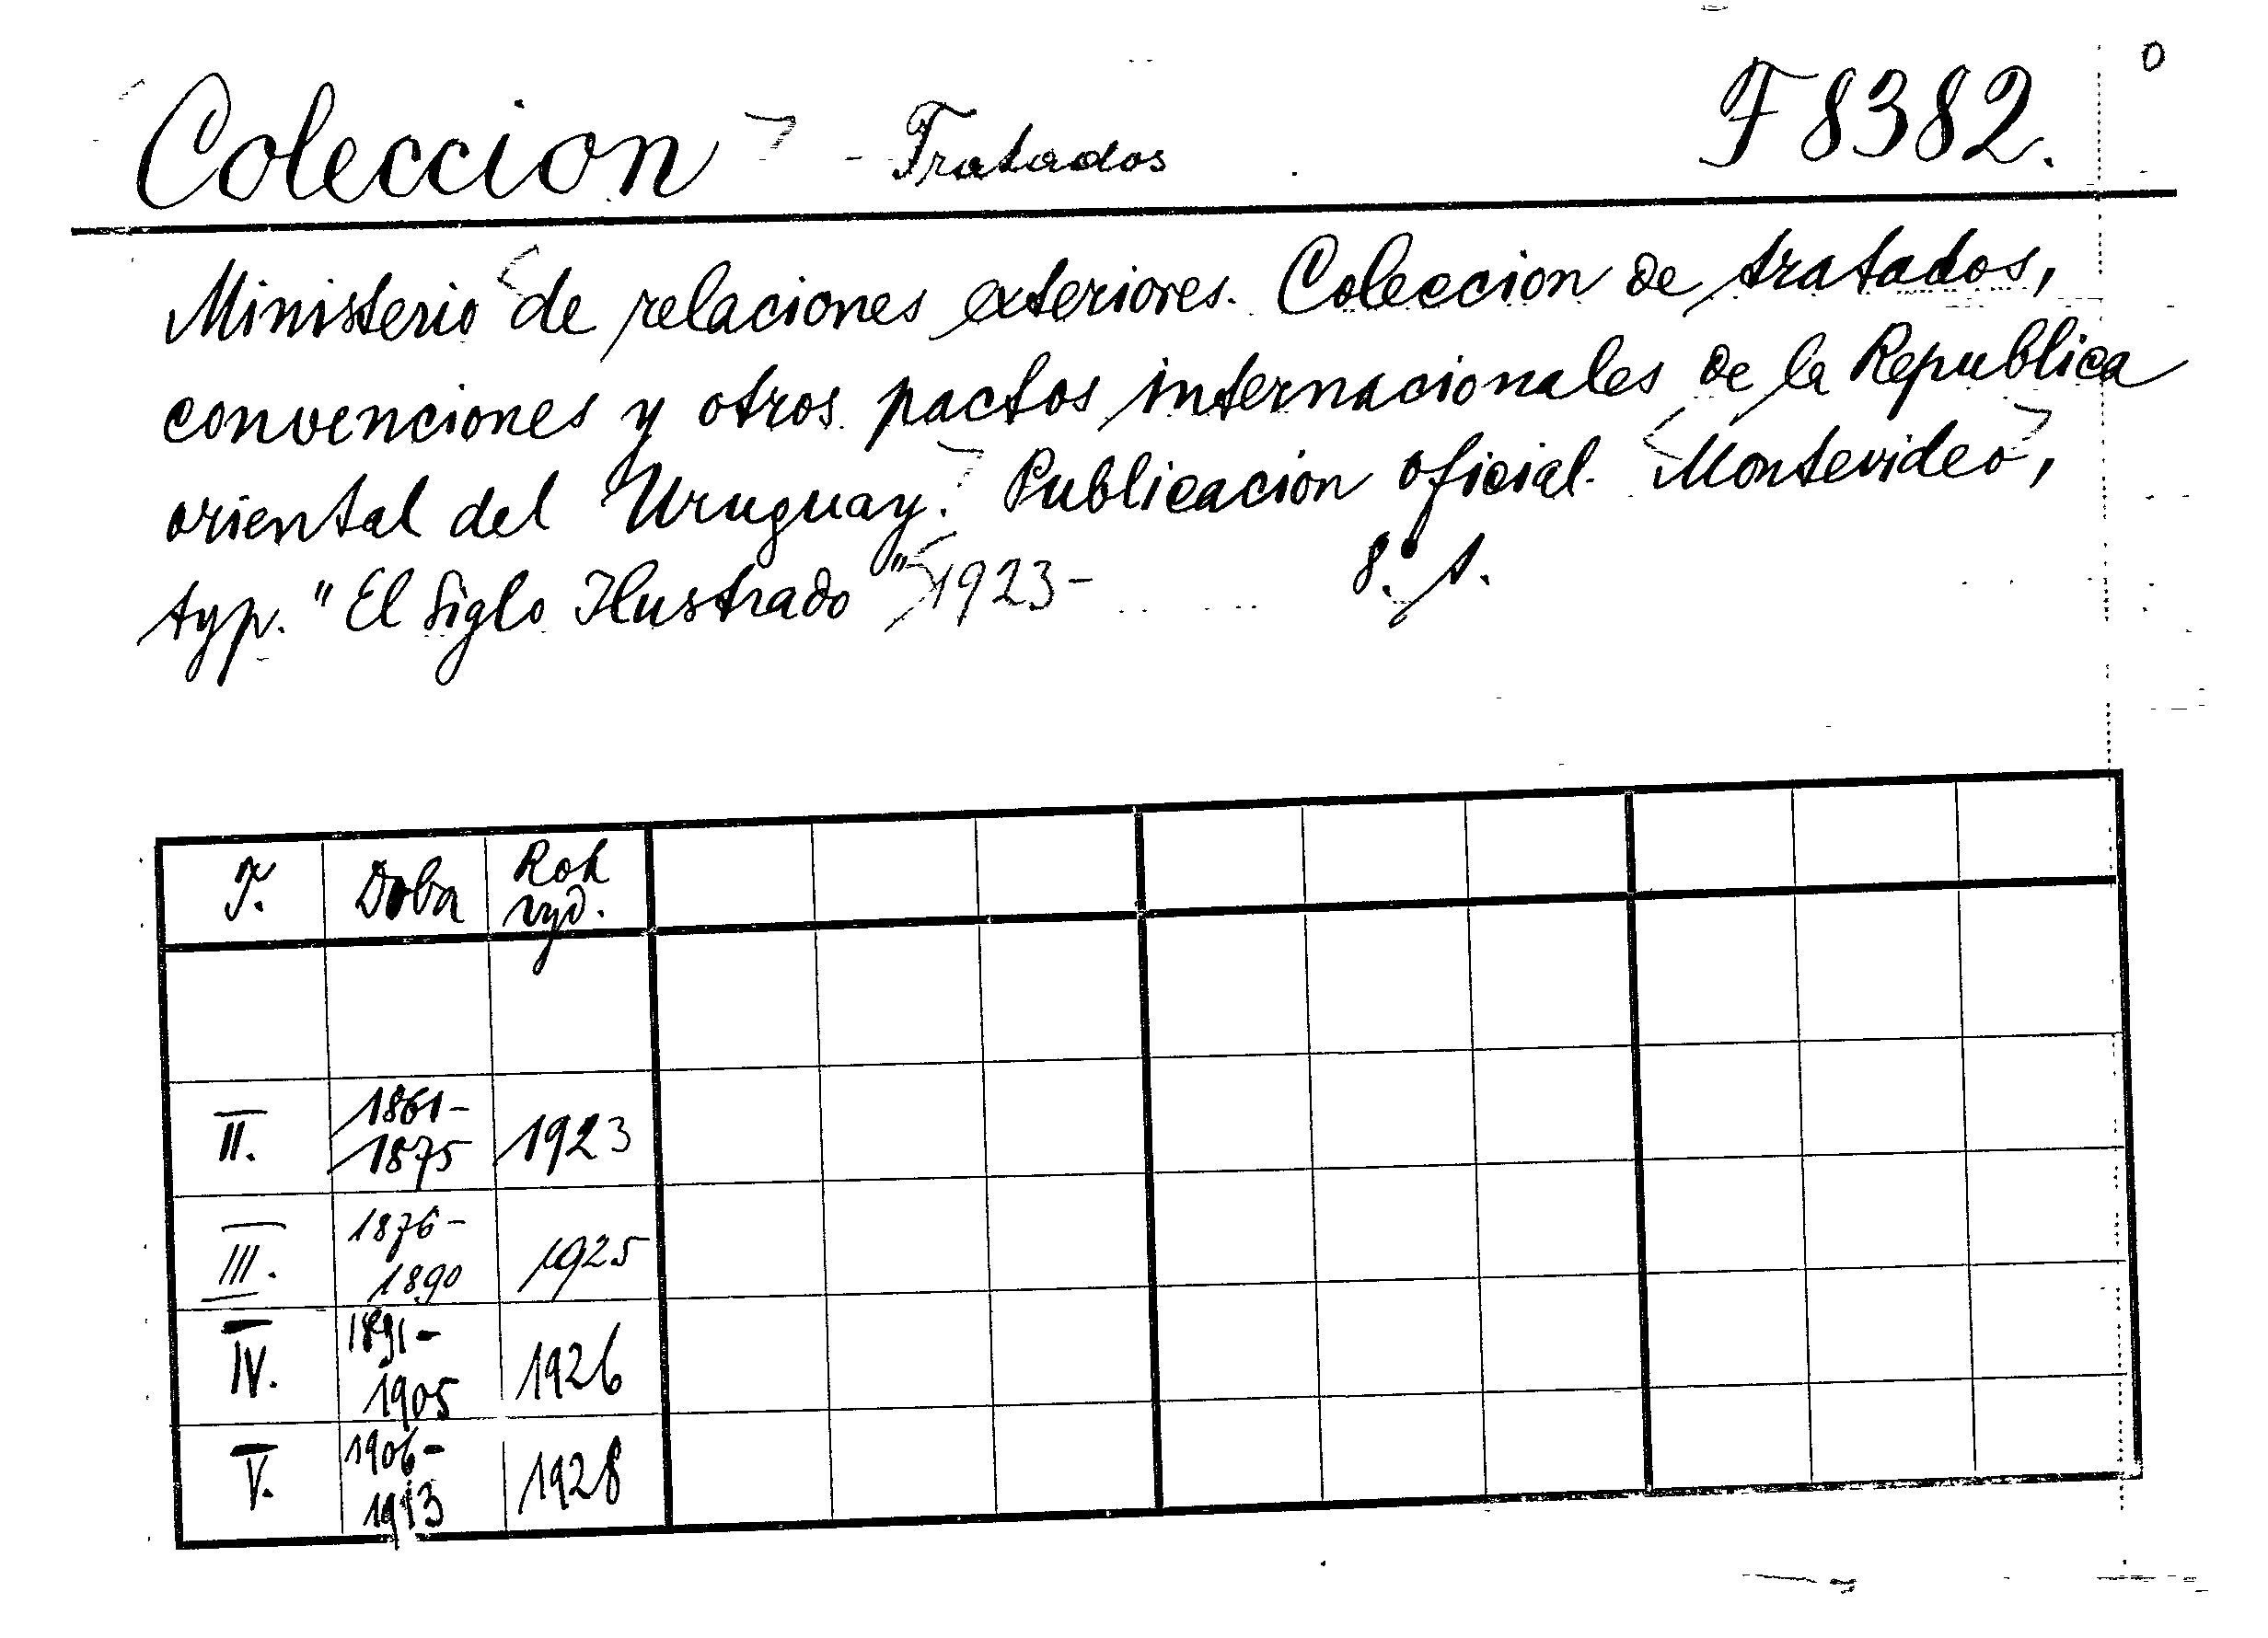 Coleccion - Tratados F 8382.
Ministerio de relaciones exteriores. Coleccion de tratados,
convenciones y otros pactos internacionales de la Republica
oriental del Uruguay. Publicacion oficial. Montevideo,
typ. "El Siglo Ilustrado" 1923- 8.° s.
T. Doba Rok vyd.
II. 1861-1875 1923
III. 1876-1890 1925
IV. 1891-1905 1926
V. 1906-1913 1928